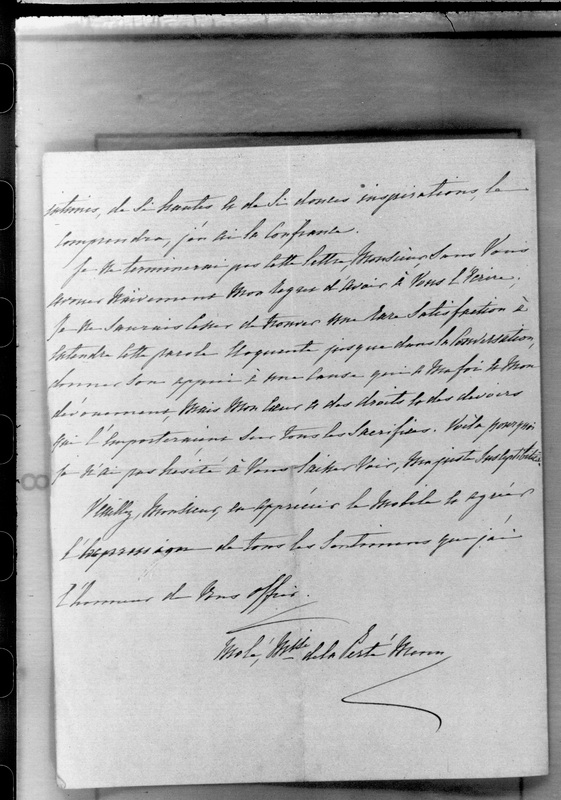 intimes, de si hautes & de si douces inspirations, le
comprendra, j'en ai la confiance.
Je ne terminerai pas cette lettre, Monsieur, sans vous
avouer naïvement mon regret d'avoir à vous l'écrire;
je ne saurais cesser de trouver une rare satisfaction à
entendre cette parole éloquente jusque dans la conversation,
donner son appui à une cause qui a ma foi & mon
dévouement, mais mon cœur a des droits & des devoirs
qui l'emporteraient sur tous les sacrifices. Voilà pourquoi
je n'ai pas hésité à vous laisser voir, ma juste susceptibilité.
Veuillez, Monsieur, en apprécier le mobile & agréer
l'expression de tous les sentimens que j'ai
l'honneur de vous offrir.
Molé, Mise de la Ferté Meun